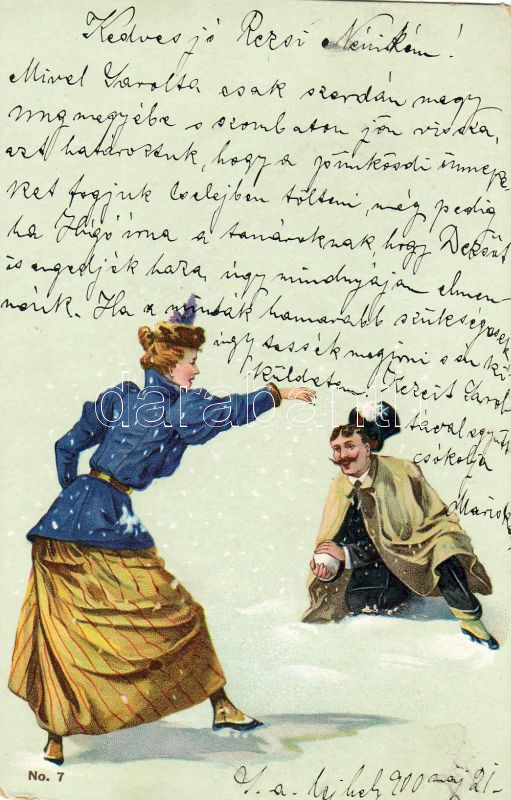 Kedves jó Rezsi Nénikém!
Mivel Sarolta csak szerdán megy
Ungmegyébe s szombaton jön vissza,
azt határoztuk, hogy a pünkösdi ünnepe-
ket fogjuk Cselejben tölteni, még pedig
ha Hugó írna a tanároknak, hogy Dezsőt
is engedjék haza, úgy mindnyájan elmen-
nénk. Ha a munkák hamarabb szükségesek
úgy tessék megírni s én ki-
küldetem. Kezeit Sarol-
tával együtt
csókolja
Mariska
darabanth
No. 7
S. a. Ujhely 900 maj 21.